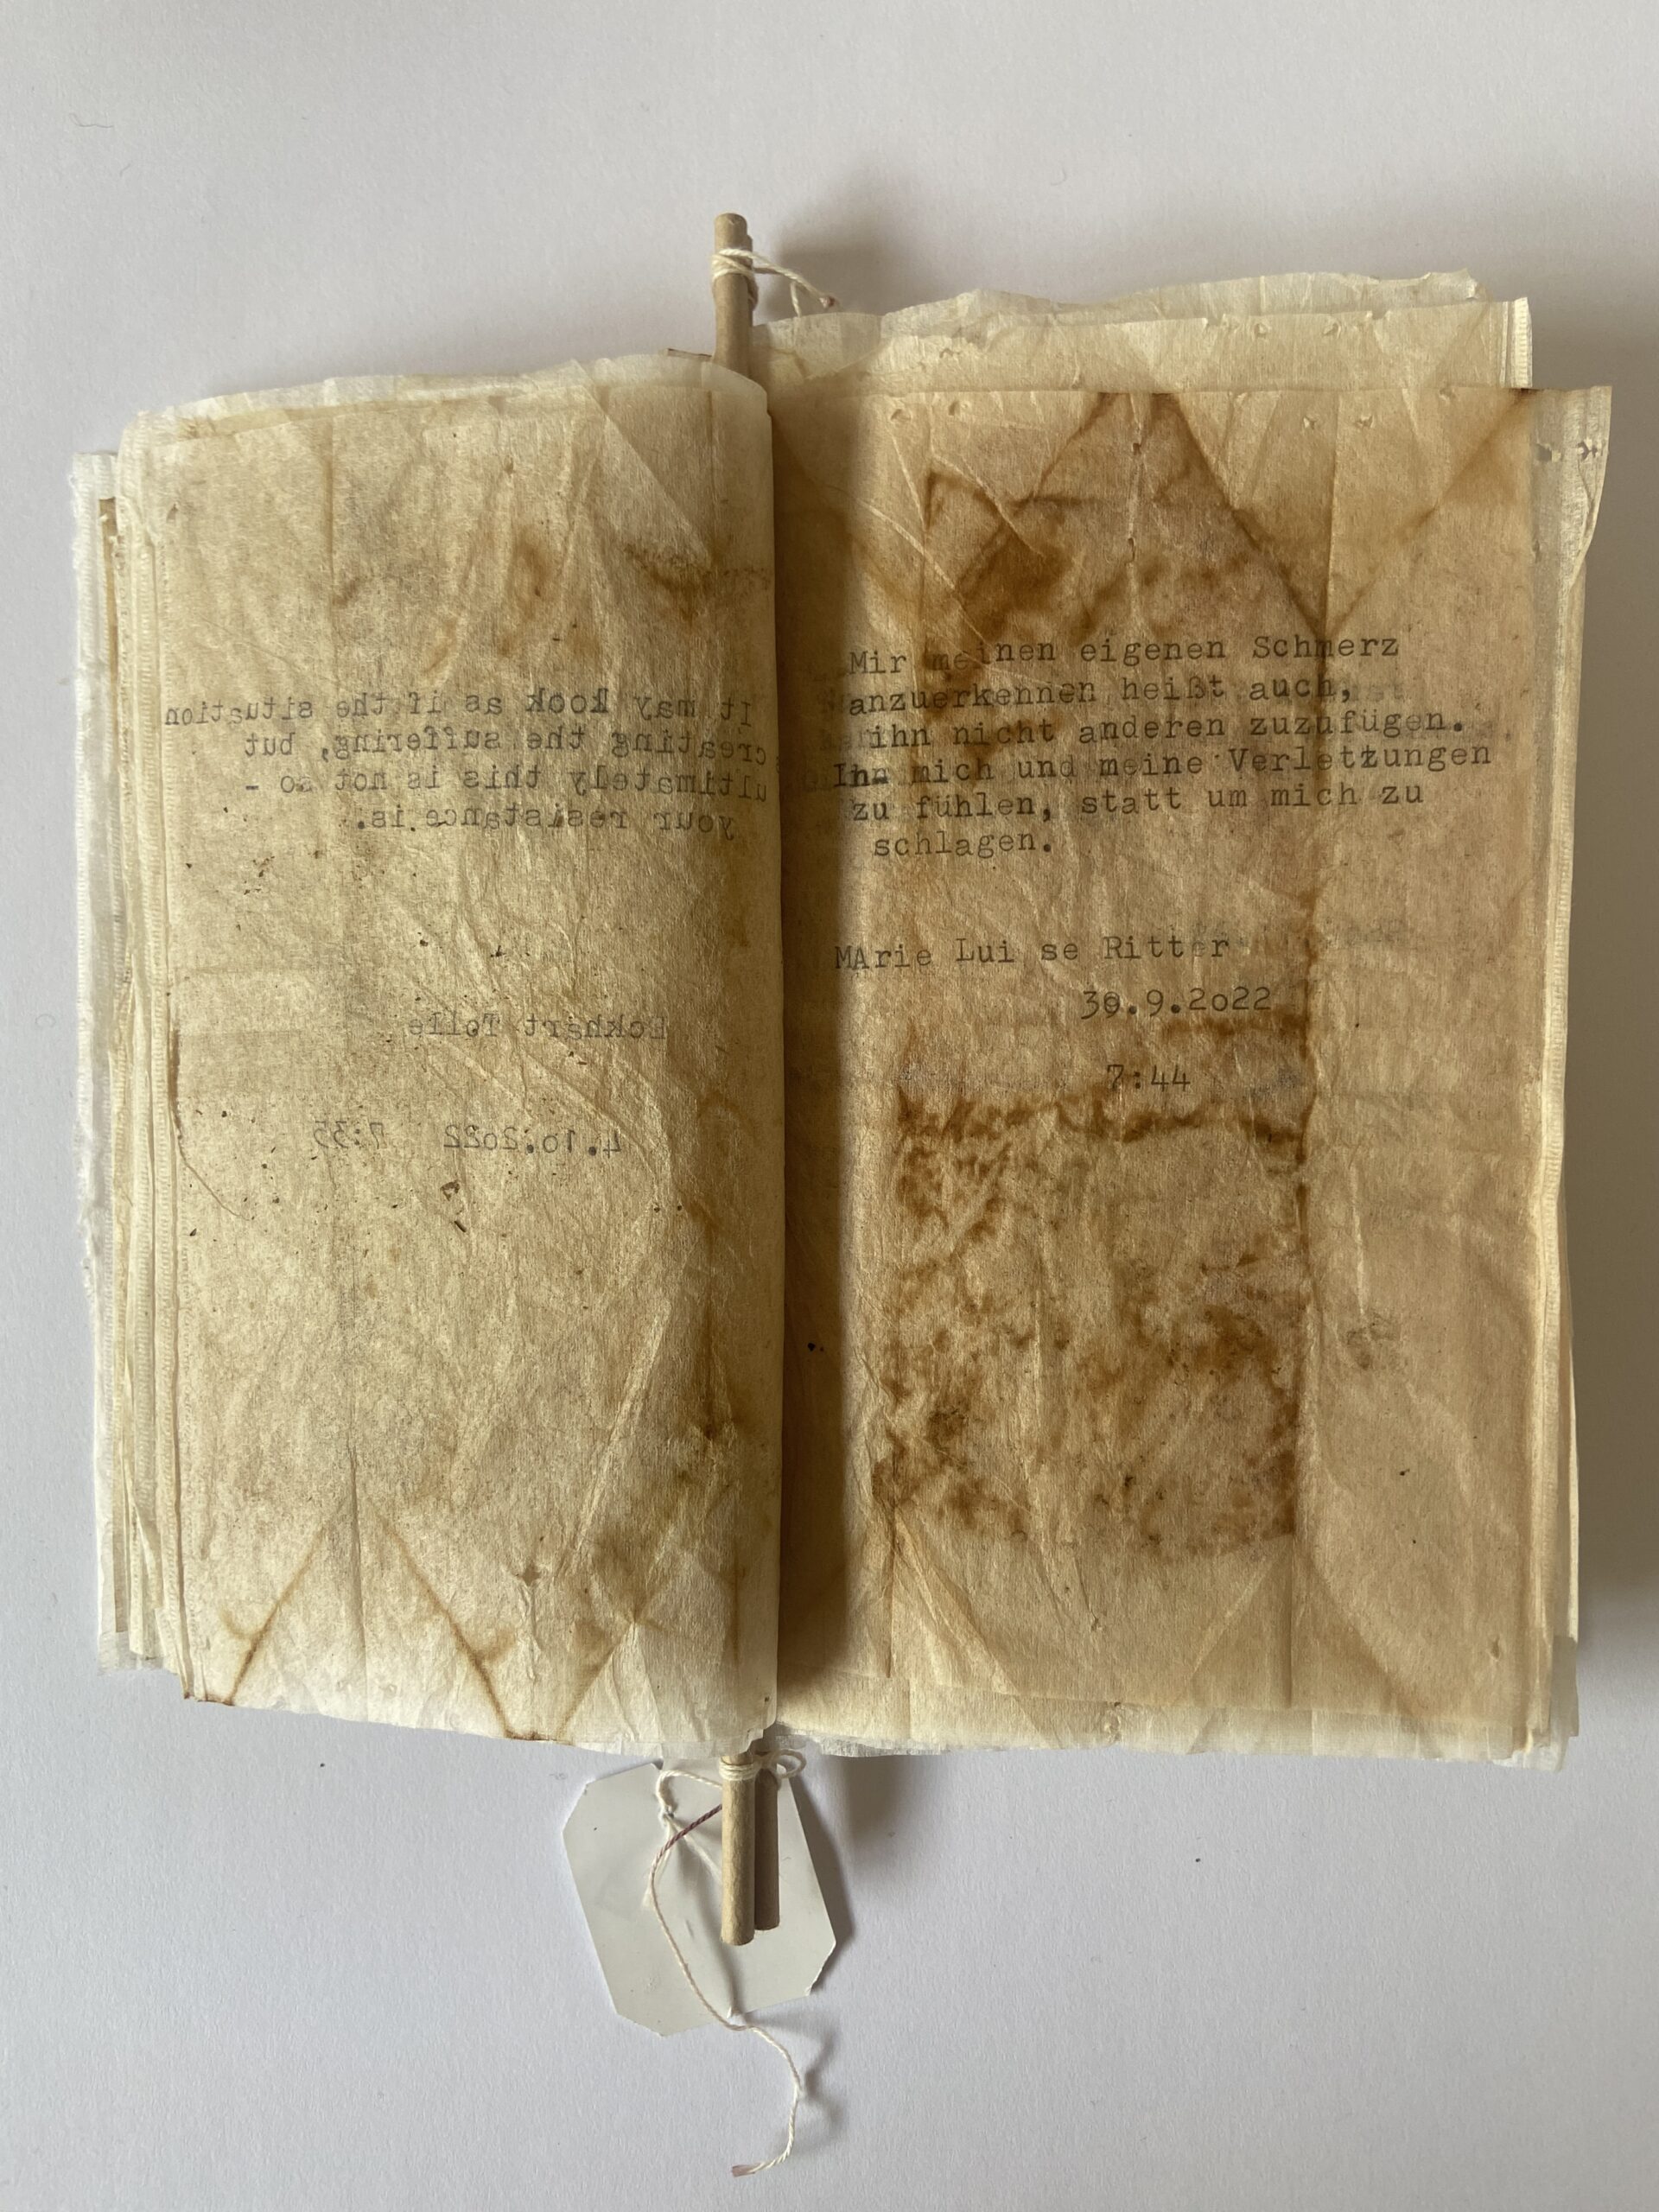 It may look as if the situation
creating the suffering, but
ultimately this is not so -
your resistance is.
Eckhart Tolle
4.10.2022 7:35
Mir meinen eigenen Schmerz
anzuerkennen heißt auch,
ihn nicht anderen zuzufügen.
Ihn mich und meine Verletzungen
zu fühlen, statt um mich zu
schlagen.
MArie Lui se Ritter
30.9.2o22
7:44